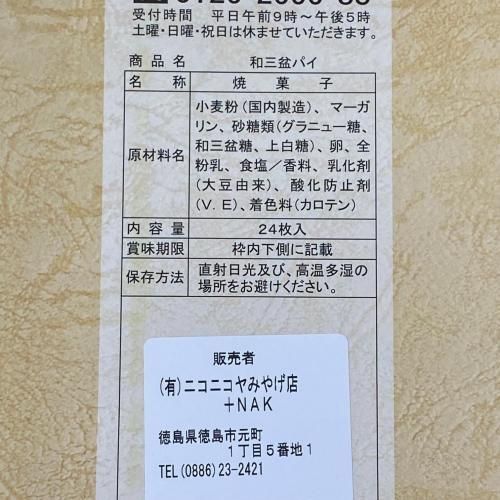 受付時間 平日午前9時～午後5時
土曜・日曜・祝日は休ませていただきます。
商品名 和三盆パイ
名称 焼菓子
原材料名 小麦粉(国内製造)、マーガ
リン、砂糖類(グラニュー糖、
和三盆糖、上白糖)、卵、全
粉乳、食塩／香料、乳化剤
(大豆由来)、酸化防止剤
(V.E)、着色料(カロテン)
内容量 24枚入
賞味期限 枠内下側に記載
保存方法 直射日光及び、高温多湿の
場所をお避けください。
販売者
(有)ニコニコヤみやげ店
+NAK
徳島県徳島市元町
1丁目5番地1
TEL(0886)23-2421